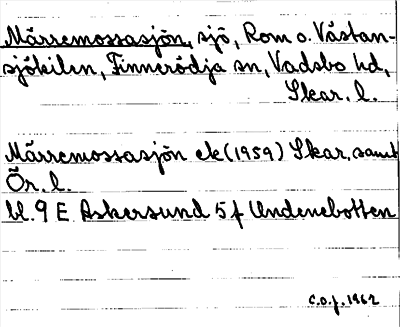 Märremossasjön, sjö, Rom o. Västan-
sjökilen, Finnerödja sn, Vadsbo hd,
Skar. l.
Märremossasjön ek (1959) Skar. samt
Ör. l.
bl. 9 E Askersund 5 f Undenebotten
C.O.J. 1962